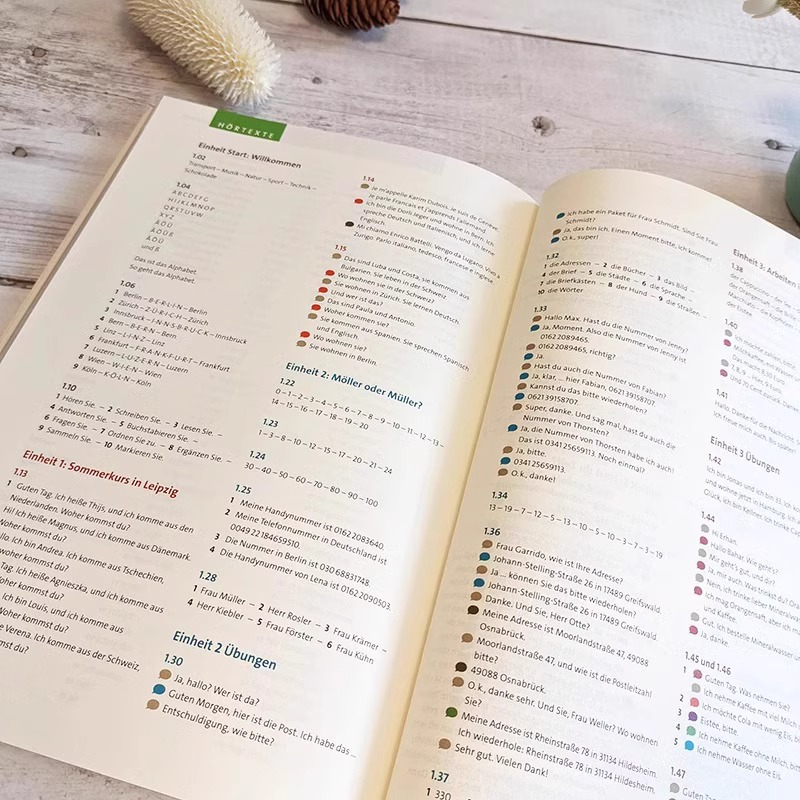 HÖRTEXTE
Einheit Start: Willkommen
1.02
Transport – Musik – Natur – Sport – Technik –
Schokolade
1.04
A B C D E F G
H I J K L M N O P
Q R S T U V W
X Y Z
Ä Ö Ü
Ä Ö Ü ß
Ä Ö Ü
und ß
Das ist das Alphabet.
So geht das Alphabet.
1.06
1 Berlin – B-E-R-L-I-N – Berlin
2 Zürich – Z-Ü-R-I-C-H – Zürich
3 Innsbruck – I-N-N-S-B-R-U-C-K – Innsbruck
4 Bern – B-E-R-N – Bern
5 Linz – L-I-N-Z – Linz
6 Frankfurt – F-R-A-N-K-F-U-R-T – Frankfurt
7 Luzern – L-U-Z-E-R-N – Luzern
8 Wien – W-I-E-N – Wien
9 Köln – K-Ö-L-N – Köln
1.10
1 Hören Sie. – 2 Schreiben Sie. – 3 Lesen Sie. –
4 Antworten Sie. – 5 Buchstabieren Sie. –
6 Fragen Sie. – 7 Ordnen Sie zu. – 8 Ergänzen Sie. –
9 Sammeln Sie. – 10 Markieren Sie.
Einheit 1: Sommerkurs in Leipzig
1.13
1 Guten Tag. Ich heiße Thijs, und ich komme aus den
Niederlanden. Woher kommst du?
Hi! Ich heiße Magnus, und ich komme aus Dänemark.
Woher kommst du?
Ich bin Andrea. Ich komme aus Tschechien,
woher kommst du?
Tag. Ich heiße Agnieszka, und ich komme aus
Woher kommst du?
Ich bin Louis, und ich komme aus
Woher kommst du?
Verena. Ich komme aus der Schweiz,
kommst du?
1.14
Je m'appelle Karim Dubois. Je suis de Genève.
Je parle Francais et j'apprends l'allemand.
Ich bin die Doris Jeger und wohne in Bern. Ich
spreche Deutsch und Italienisch, und ich lerne
Englisch.
Mi chiamo Enrico Battelli. Vengo da Lugano. Vivo a
Zurigo. Parlo italiano, tedesco, francese e inglese.
1.15
Das sind Luba und Costa, sie kommen aus
Bulgarien. Sie leben in der Schweiz.
Wo wohnen sie in der Schweiz?
Sie wohnen in Zürich. Sie lernen Deutsch
Und wer ist das?
Das sind Paula und Antonio.
Woher kommen sie?
Sie kommen aus Spanien. Sie sprechen Spanisch
und Englisch.
Wo wohnen sie?
Sie wohnen in Berlin.
Einheit 2: Möller oder Müller?
1.22
0 – 1 – 2 – 3 – 4 – 5 – 6 – 7 – 8 – 9 – 10 – 11 – 12 – 13 –
14 – 15 – 16 – 17 – 18 – 19 – 20
1.23
1 – 3 – 8 – 10 – 12 – 15 – 17 – 20 – 21 – 24
1.24
30 – 40 – 50 – 60 – 70 – 80 – 90 – 100
1.25
1 Meine Handynummer ist 0162 2083640.
2 Meine Telefonnummer in Deutschland ist
0049 22184659510.
3 Die Nummer in Berlin ist 030 6883 1748.
4 Die Handynummer von Lena ist 0162 2090503.
1.28
1 Frau Müller – 2 Herr Rosler – 3 Frau Krämer –
4 Herr Kiebler – 5 Frau Förster – 6 Frau Kühn
Einheit 2 Übungen
1.30
Ja, hallo? Wer ist da?
Guten Morgen, hier ist die Post. Ich habe das ...
Entschuldigung, wie bitte?
Ich habe ein Paket für Frau Schmidt. Sind Sie Frau
Schmidt?
Ja, das bin ich. Einen Moment bitte, ich komme!
O.k., super!
1.32
1 die Adressen – 2 die Bücher – 3 das Bild –
4 der Brief – 5 die Städte – 6 die Sprache –
7 die Briefkästen – 8 der Hund – 9 die Straßen –
10 die Wörter
1.33
Hallo Max. Hast du die Nummer von Jenny?
Ja, Moment. Also die Nummer von Jenny ist
0162 2089465.
0162 2089465, richtig?
Ja.
Hast du auch die Nummer von Fabian?
Ja, klar, ... hier Fabian, 062139158707.
Kannst du das bitte wiederholen?
062139158707.
Super, danke. Und sag mal, hast du auch die
Nummer von Thorsten?
Ja, die Nummer von Thorsten habe ich auch!
Das ist 03412659113. Noch einmal?
Ja, bitte.
03412659113.
O.k., danke!
1.34
13 – 19 – 7 – 12 – 5 – 13 – 10 – 5 – 10 – 3 – 7 – 3 – 19
1.36
Frau Garrido, wie ist Ihre Adresse?
Johann-Stelling-Straße 26 in 17489 Greifswald.
Ja ... können Sie das bitte wiederholen?
Johann-Stelling-Straße 26 in 17489 Greifswald.
Danke. Und Sie, Herr Otte?
Meine Adresse ist Moorlandstraße 47, 49088
Osnabrück.
Moorlandstraße 47, und wie ist die Postleitzahl
bitte?
49088 Osnabrück.
O.k., danke sehr. Und Sie, Frau Weller? Wo wohnen
Sie?
Meine Adresse ist Rheinstraße 78 in 31134 Hildesheim.
Ich wiederhole: Rheinstraße 78 in 31134 Hildesheim.
Sehr gut. Vielen Dank!
1.37
1 330
Einheit 3: Arbeiten
1.38
der Cappuccino – der
der Orangensaft – die
Marchstraße – die
der Eistee
1.40
Ich möchte zahlen, bitte.
Das alles
Das ist 8,30 Euro.
Und 70 Cent zurück. Danke
1.41
Hallo. Danke für die Nachricht.
Ich freue mich auch. Bis später!
Einheit 3 Übungen
1.42
Ich bin Jonas und ich bin 33. Ich
und wohne jetzt in Hamburg. Ich
Glück, ich bin Kellner. Ich trinke
1.44
Hi Erhan.
Hallo Bahar. Wie geht's?
Mir geht's gut, und dir?
Ja, mir auch. Was trinkst du?
Nein, ich trinke lieber Mineralwasser
Ich mag Orangensaft, aber ich
und Kaffee.
Gut. Ich bestelle Mineralwasser
Ja, danke.
1.45 und 1.46
1 Guten Tag. Was nehmen Sie?
2 Ich nehme Kaffee mit viel Milch
3 Ich möchte Cola mit wenig Eis,
4 Eistee, bitte.
Ich nehme Kaffee ohne Milch, bitte.
5 Ich nehme Wasser ohne Eis.
1.47
Guten Tag